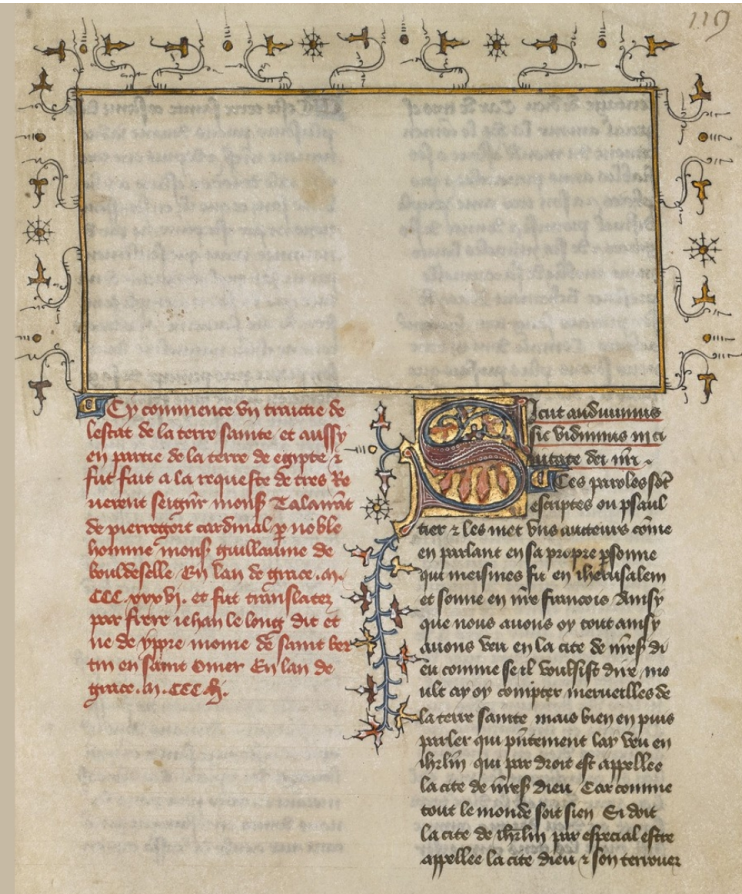 119
Cy commence vn traictie de
lestat de la terre sainte et aussy
en partie de la terre de egipte ⁊
fut fait a la requeste de tres Re
uerent seigñr monsʳ Talarãt
de pierregort cardinal ꝑ noble
homme monsʳ guillaume de
bouldeselle En lan de grace .m.
CCC. xxxvi. et fut translatez
par frere iehan le long dit et
ne de yppre moine de saint ber
tin en saint Omer En lan de
grace .m. CCC. li.
Sicut audiuimus
sic vidimus in ci
uitate dei nr̃i .
Ces paroles sõt
escriptes ou psaul
tier ⁊ les met vns aucteurs cõme
en parlant en sa propre ꝑsonne
qui meismes fu en iherusalem
et sonne en nr̃e francois Ainsy
que nous auons oy tout ainsy
auons veu en la cite de nr̃eſ di
eu comme se il voulsist dire mo
ult ay oy compter merueilles de
la terre sainte mais bien en puis
parler qui pñtement lay veu en
ihr̃lm qui par droit est appellee
la cite de nr̃eſ dieu Car comme
tout le monde soit sien Si doit
la cite de ihr̃lm par especial estre
appellee la cite dieu ⁊ son terrouer